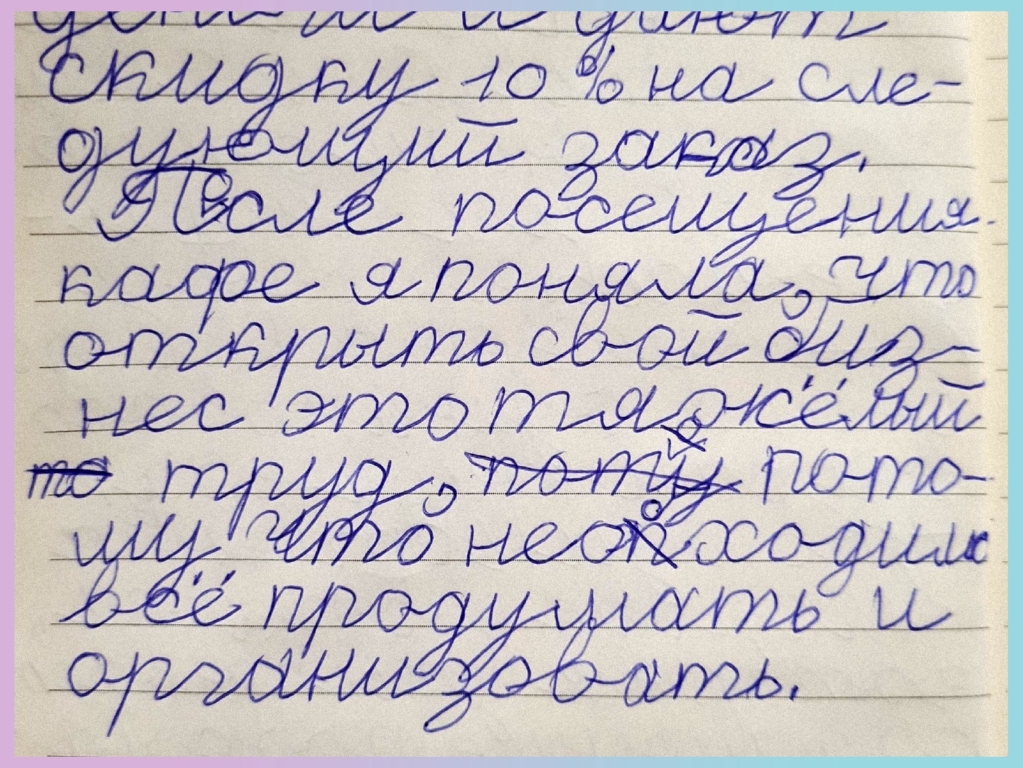 и дают
скидку 10% на сле-
дующий заказ.
После посещения
кафе я поняла, что
открыть свой биз-
нес это тяжёлый
то труд, поту пото-
му что необходимо
всё продумать и
организовать.